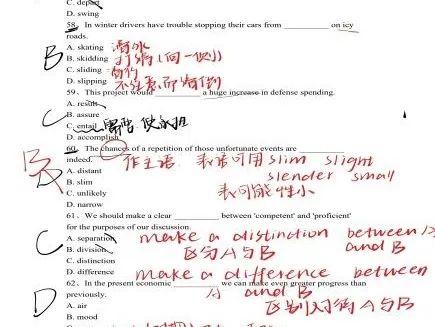 C. depart
D. swing
58. In winter drivers have trouble stopping their cars from ________ on icy
roads.
B
A. skating 滑冰
B. skidding 打滑(向一侧)
C. sliding 滑行
D. slipping 不注意而滑倒
59、This project would ________ a huge increase in defense spending.
A. result
B. assure
C
C. entail
D. accomplish
60. The chances of a repetition of those unfortunate events are ________
indeed.
B
作主语 表示可用 slim slight
slender small
表可能性小
A. distant
B. slim
C. unlikely
D. narrow
61、We should make a clear ________ between 'competent' and 'proficient'
for the purposes of our discussion.
C
A. separation make a distinction between A
B. division 区分A与B and B
C. distinction
D. difference make a difference between
62、In the present economic ________ we can make even greater progress than
A and B
previously.
D
A. air
B. mood